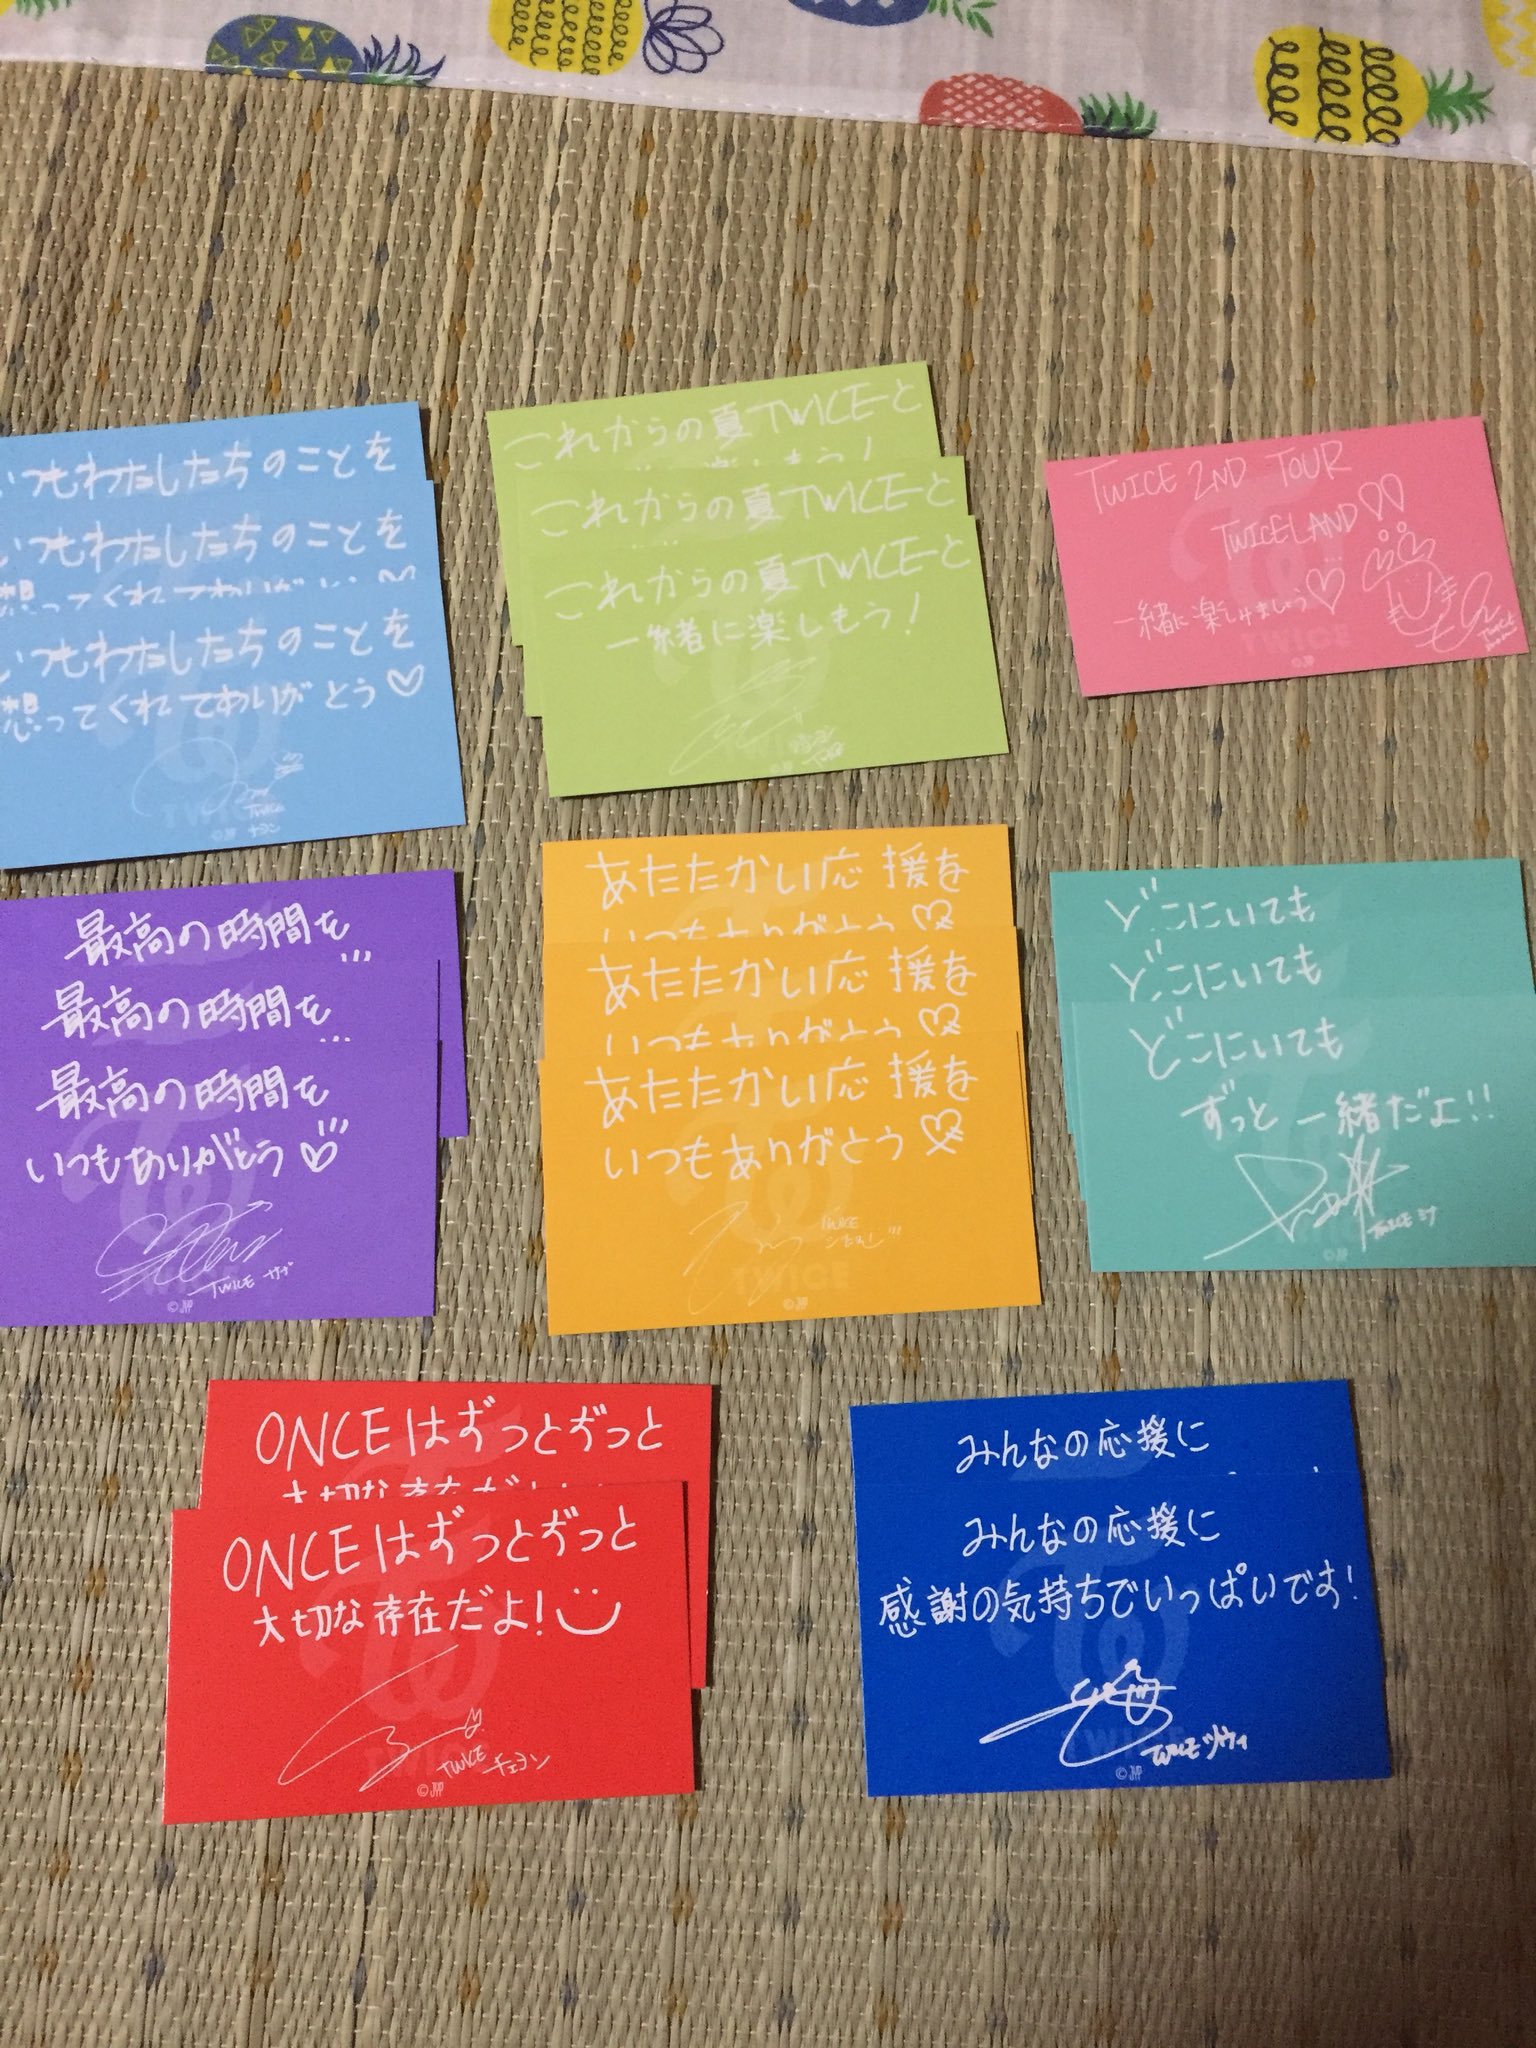 いつもわたしたちのことを
いつもわたしたちのことを
想ってくれてありがとう♡
いつもわたしたちのことを
想ってくれてありがとう♡
TWICE
ナヨン
TWICE
©JYP
これからの夏TWICEと
楽しもう!
これからの夏TWICEと
これからの夏TWICEと
一緒に楽しもう!
ジョンヨン
TWICE
TWICE
©JYP
TWICE 2ND TOUR
TWICELAND!!
一緒に楽しみましょう♡
TWICE
TWICE
©JYP
最高の時間を
最高の時間を
最高の時間を
いつもありがとう♡
TWICE サナ
TWICE
©JYP
あたたかい応援を
いつもありがとう♡
あたたかい応援を
いつもありがとう♡
あたたかい応援を
いつもありがとう♡
TWICE
ジヒョ
TWICE
©JYP
どこにいても
どこにいても
どこにいても
ずっと一緒だよ!!
TWICE ミナ
©JYP
ONCEはずっとずっと
大切な存在だよ!
ONCEはずっとずっと
大切な存在だよ!
TWICE チェヨン
TWICE
©JYP
みんなの応援に
みんなの応援に
感謝の気持ちでいっぱいです!
TWICE ツウィ
TWICE
©JYP